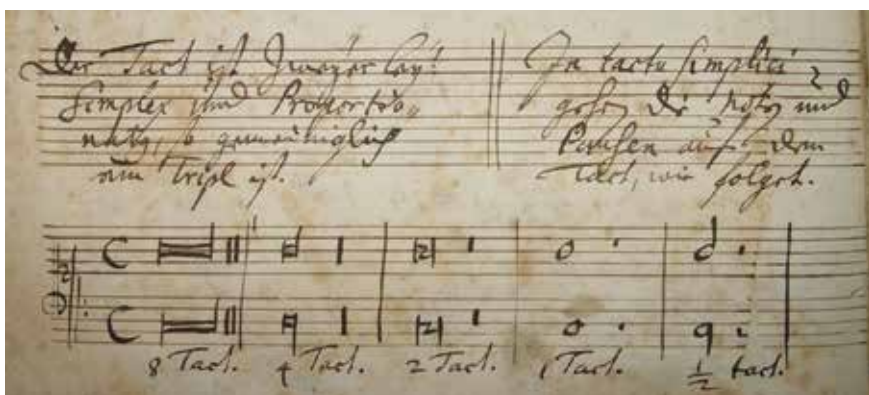 Der Tact ist Zweyer ley:
Simplex und Proportio„
so gemainiglich
ain Tripl ist.
In tactu simplici
gehen die Noten und
Pausen auf dem
Tact, wie folget.
8 Tact. 4 Tact. 2 Tact. 1 Tact. 1/2 tact.